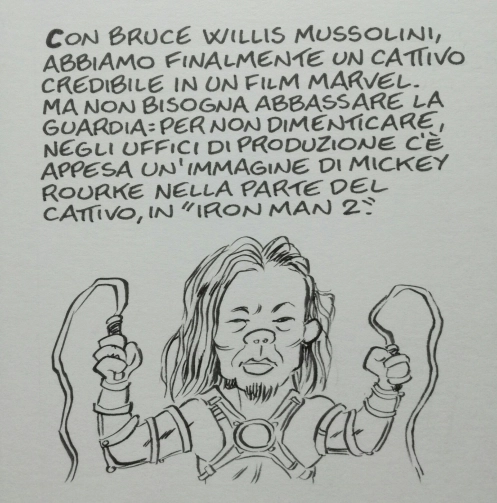 CON BRUCE WILLIS MUSSOLINI,
ABBIAMO FINALMENTE UN CATTIVO
CREDIBILE IN UN FILM MARVEL.
MA NON BISOGNA ABBASSARE LA
GUARDIA: PER NON DIMENTICARE,
NEGLI UFFICI DI PRODUZIONE C'È
APPESA UN'IMMAGINE DI MICKEY
ROURKE NELLA PARTE DEL
CATTIVO, IN "IRON MAN 2".